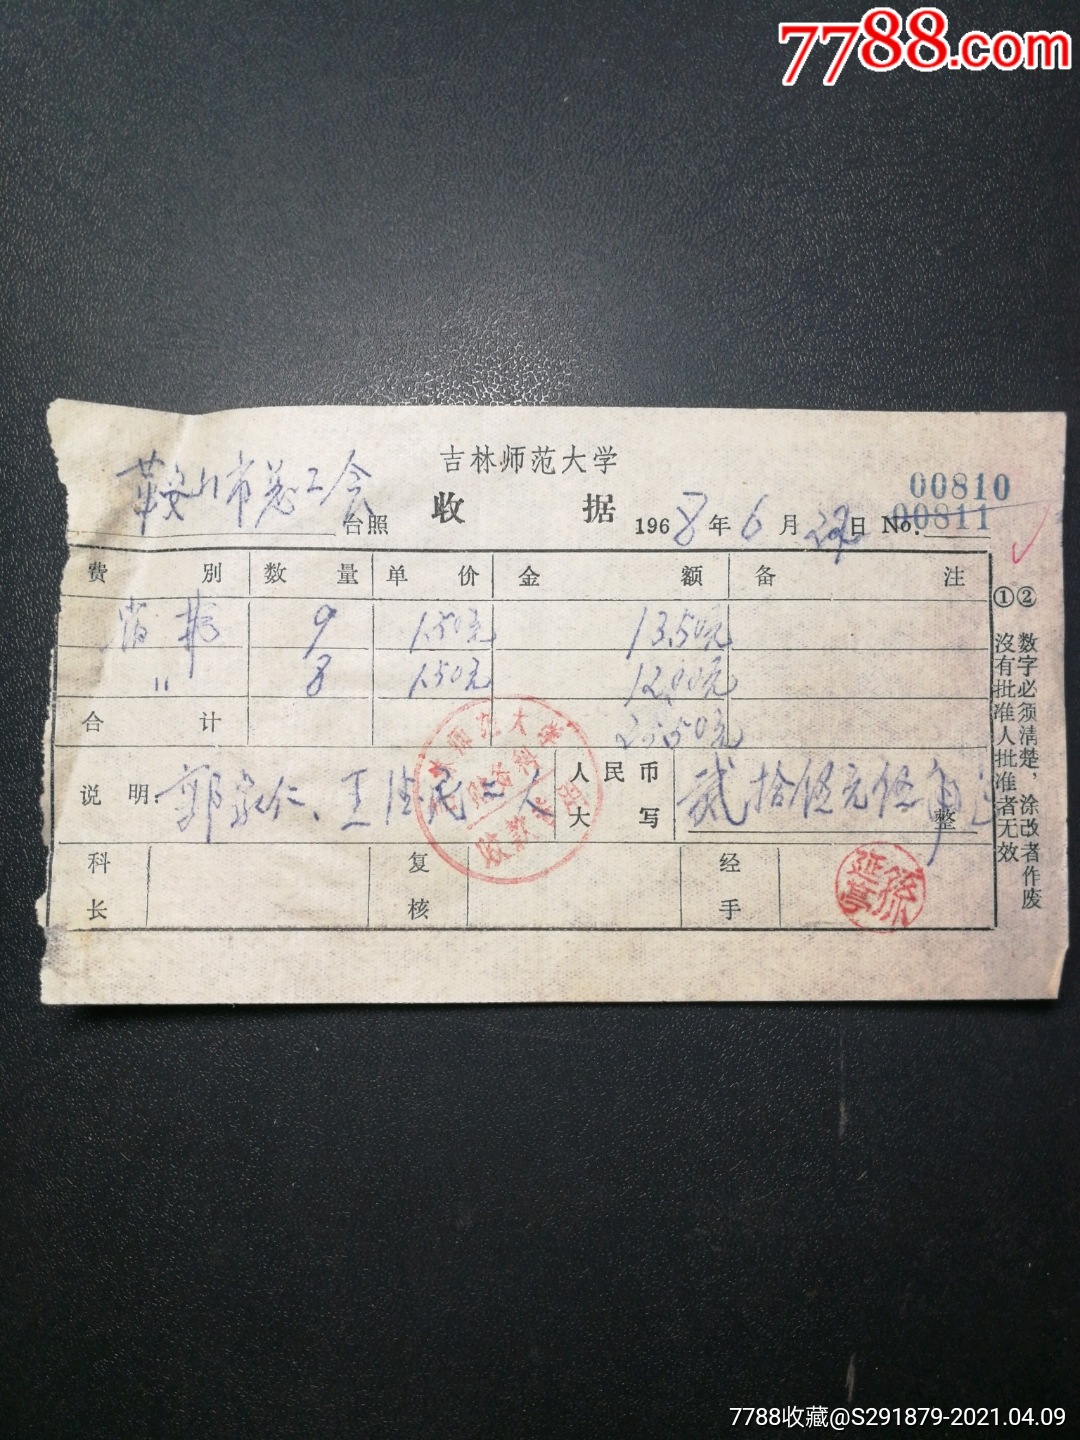 7788.com
吉林师范大学
鞍山市总工会 台照
收 据
1968年6月 日 No.
00810
00811
费 別 数 量 单 价 金 额 备 注
宿费 9 1.50元 13.50元
〃 8 1.50元 12.00元
合 计 25.50元
说 明: 郭家仁、王 二人
人民币大写 贰拾伍元伍角 整
科长 复核 经手
师范大学
财务科
收款专
孫延亭
①数字必须清楚，涂改者作废
②沒有批准人批准者无效
7788收藏@S291879-2021.04.09